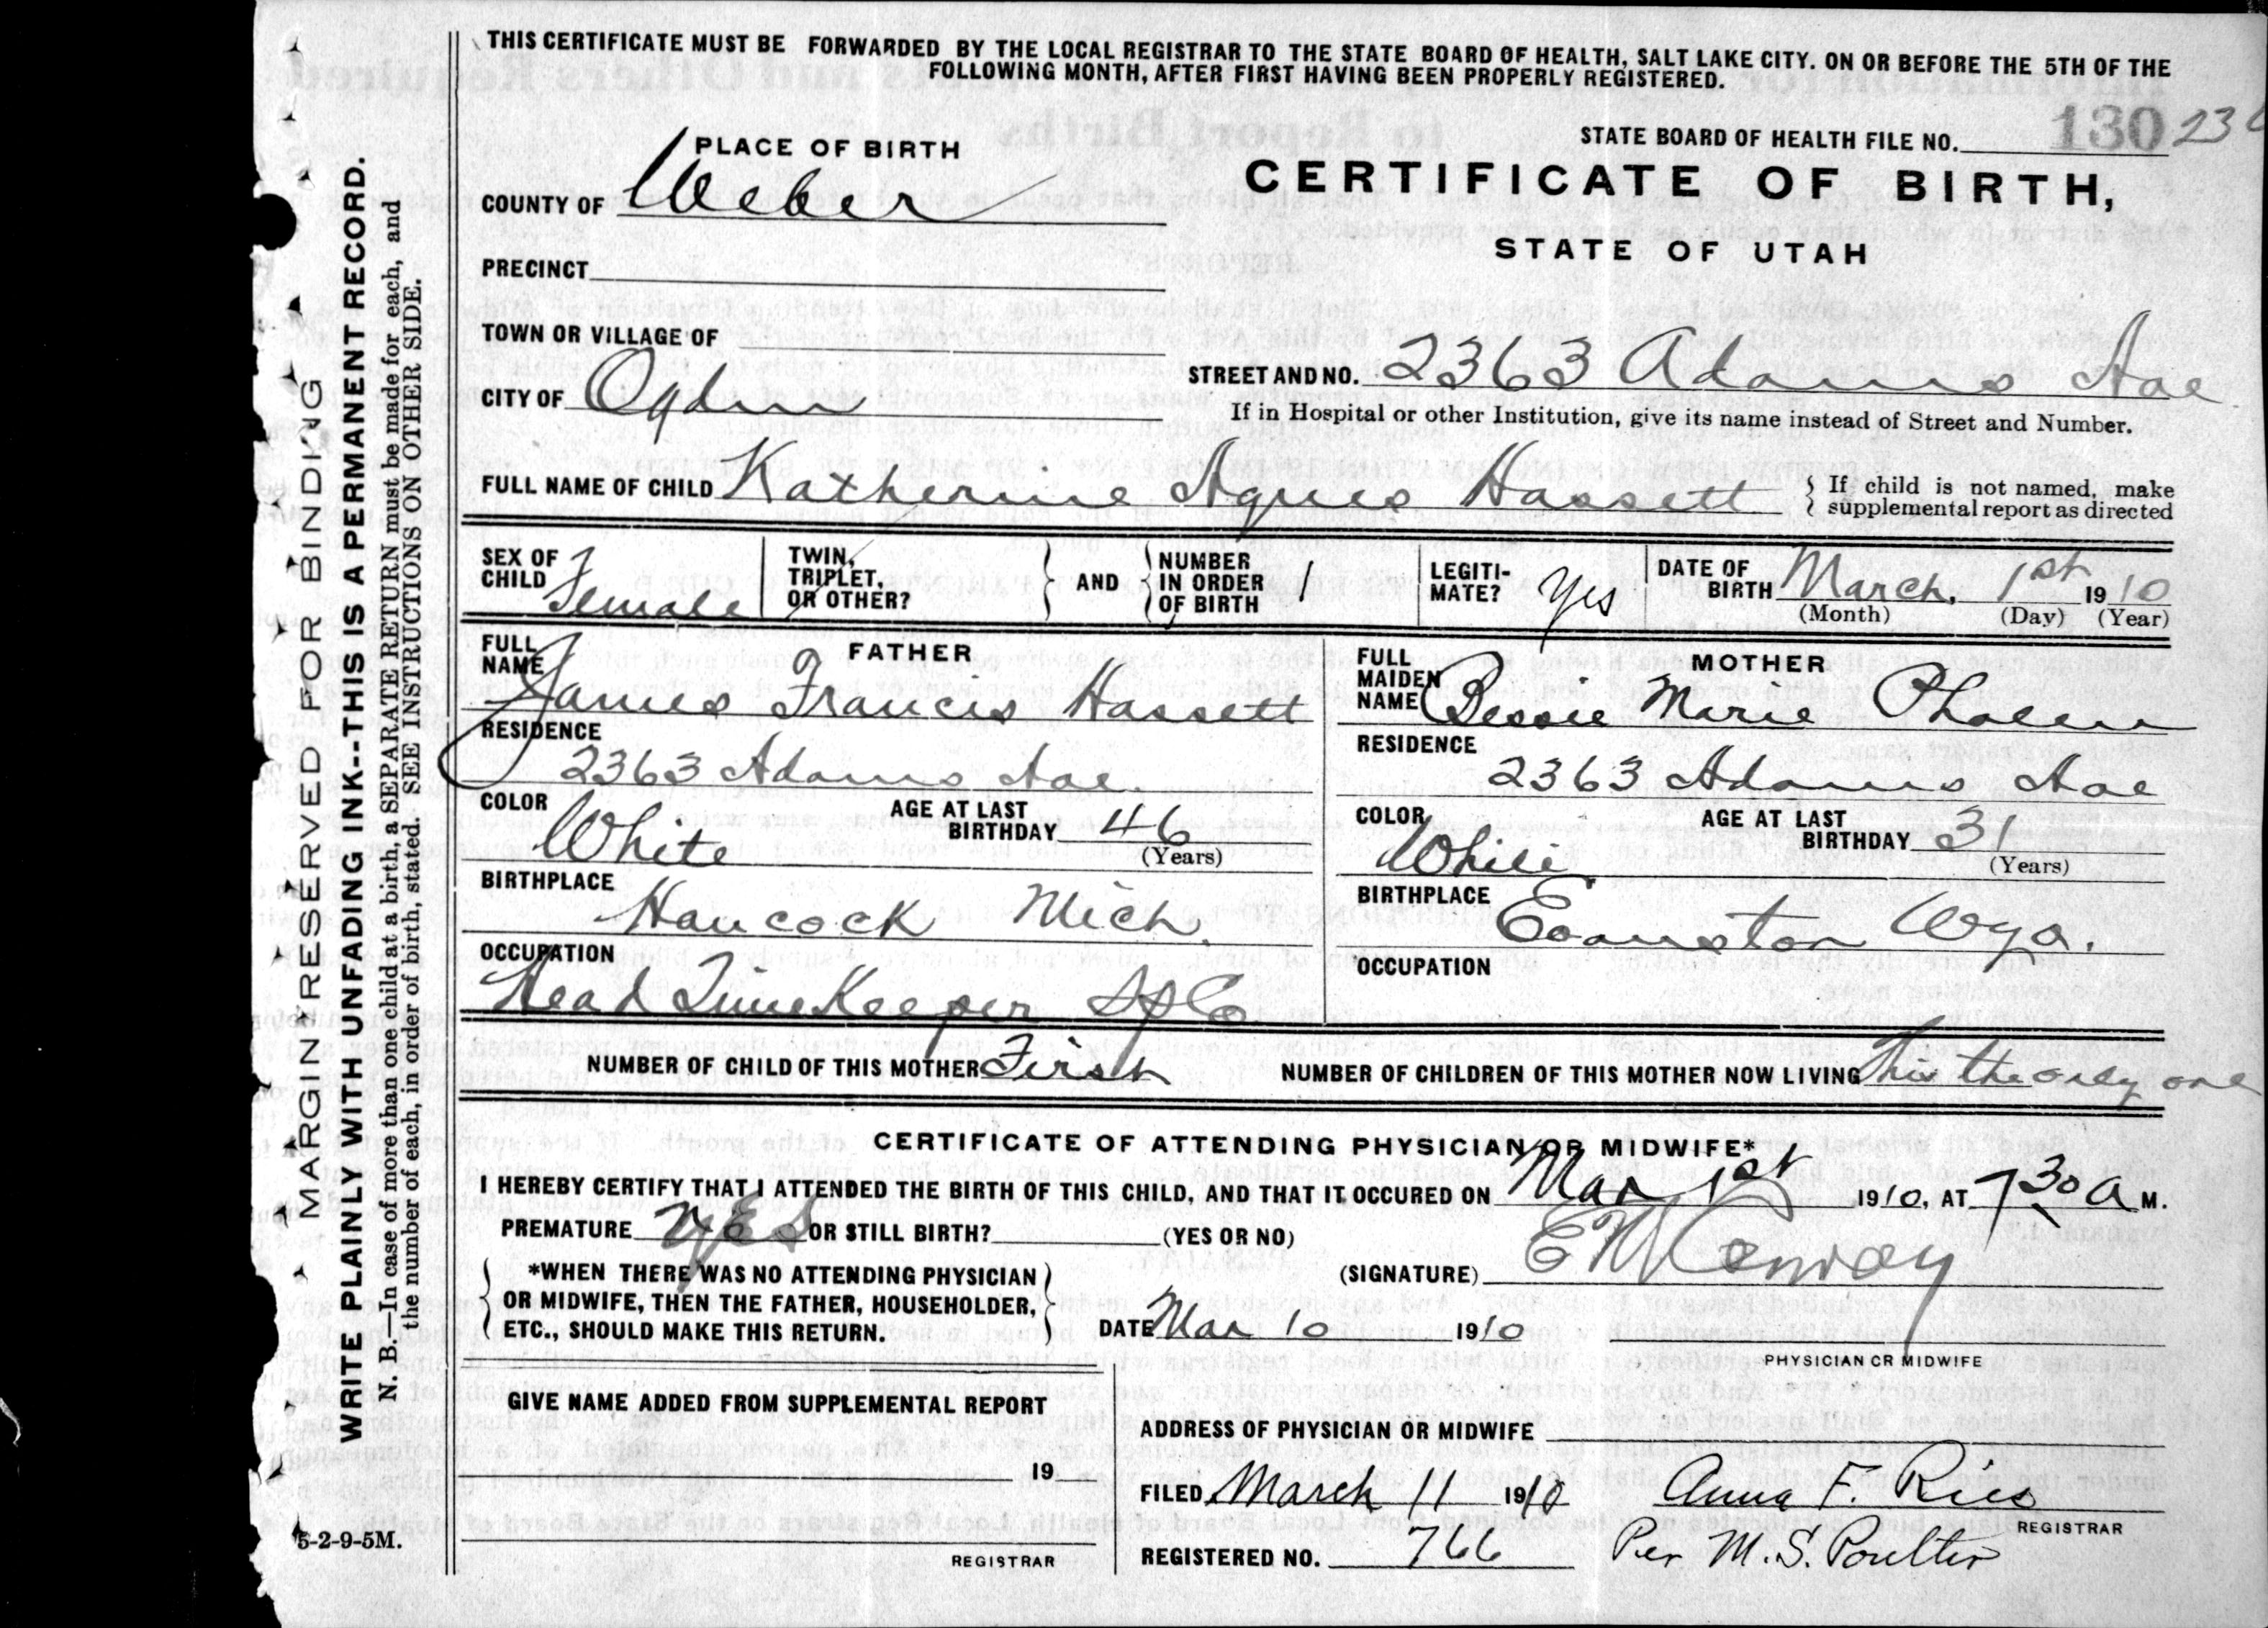 THIS CERTIFICATE MUST BE FORWARDED BY THE LOCAL REGISTRAR TO THE STATE BOARD OF HEALTH, SALT LAKE CITY. ON OR BEFORE THE 5TH OF THE
FOLLOWING MONTH, AFTER FIRST HAVING BEEN PROPERLY REGISTERED.
STATE BOARD OF HEALTH FILE NO. 130
PLACE OF BIRTH
CERTIFICATE OF BIRTH,
COUNTY OF Weber
STATE OF UTAH
PRECINCT
TOWN OR VILLAGE OF
STREET AND NO. 2363 Adams Ave
CITY OF Ogden
If in Hospital or other Institution, give its name instead of Street and Number.
FULL NAME OF CHILD Katherine Agnes Hassett { If child is not named, make
supplemental report as directed
SEX OF CHILD Female
TWIN, TRIPLET, OR OTHER?
AND
NUMBER IN ORDER OF BIRTH 1
LEGITI-MATE? Yes
DATE OF BIRTH March, 1st 1910
(Month) (Day) (Year)
FATHER
FULL NAME James Francis Hassett
RESIDENCE
2363 Adams Ave.
COLOR White AGE AT LAST BIRTHDAY 46
(Years)
BIRTHPLACE
Hancock Mich.
OCCUPATION
Head TimeKeeper S P Co
MOTHER
FULL MAIDEN NAME Bessie Marie Phalen
RESIDENCE
2363 Adams Ave
COLOR White AGE AT LAST BIRTHDAY 31
(Years)
BIRTHPLACE
Evanston Wyo.
OCCUPATION
NUMBER OF CHILD OF THIS MOTHER First NUMBER OF CHILDREN OF THIS MOTHER NOW LIVING This the only one
CERTIFICATE OF ATTENDING PHYSICIAN OR MIDWIFE*
I HEREBY CERTIFY THAT I ATTENDED THE BIRTH OF THIS CHILD, AND THAT IT OCCURED ON Mar 1st 1910, AT 7 30 A M.
PREMATURE yes OR STILL BIRTH? (YES OR NO)
*WHEN THERE WAS NO ATTENDING PHYSICIAN
OR MIDWIFE, THEN THE FATHER, HOUSEHOLDER,
ETC., SHOULD MAKE THIS RETURN.
(SIGNATURE) E M Conroy
DATE Mar 10 1910
PHYSICIAN OR MIDWIFE
GIVE NAME ADDED FROM SUPPLEMENTAL REPORT
19
REGISTRAR
ADDRESS OF PHYSICIAN OR MIDWIFE
FILED March 11 1910 Anna F. Ries
REGISTRAR
REGISTERED NO. 766 Per M. S. Poulter
MARGIN RESERVED FOR BINDING
WRITE PLAINLY WITH UNFADING INK--THIS IS A PERMANENT RECORD.
N. B.—In case of more than one child at a birth, a SEPARATE RETURN must be made for each, and
the number of each, in order of birth, stated. SEE INSTRUCTIONS ON OTHER SIDE.
5-2-9-5M.